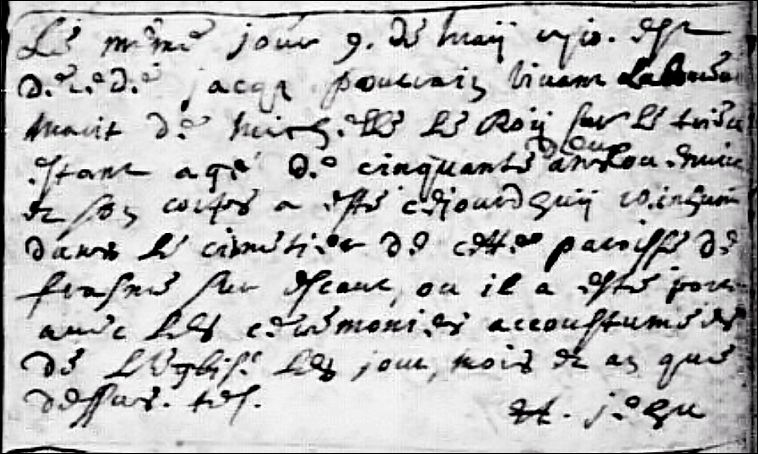 Le même jour 9. de maÿ est
decedé jacqs vivant Laboureur
marit de michelle Le Roÿ sur Le
estant agé de cinquante deux ans ou environ
et son corps a esté cejourdhuÿ inhumé
dans le cimetier de cette paroisse de
frasne sur escaut, ou il a esté porté
avec les ceremonies accoustumées
de L'eglise Les jour, mois et an que
dessus. tes.
jehu